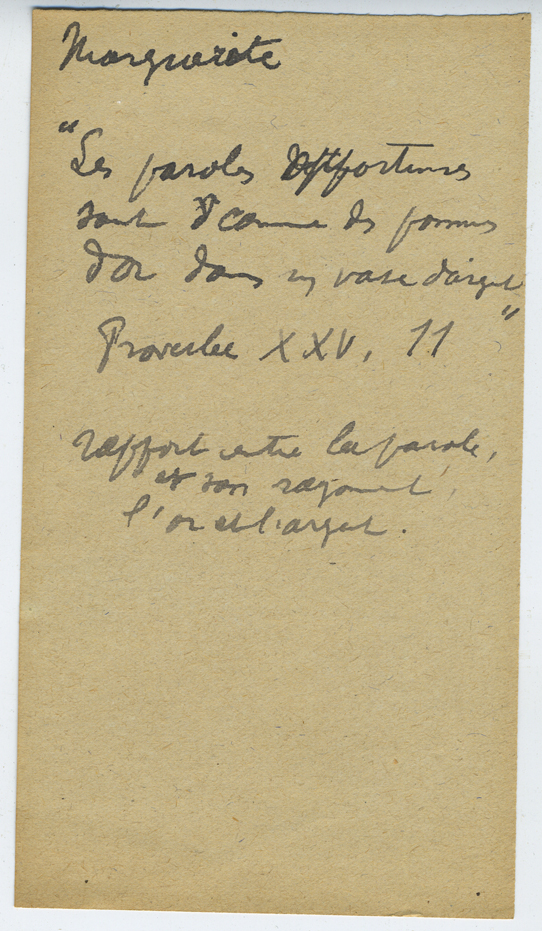 Marguerite
"Les paroles opportunes
sont comme des pommes
d'or dans un vase d'argent
"
Proverbe XXV, 11
rapport entre la parole,
et son
l'or et l'argent.